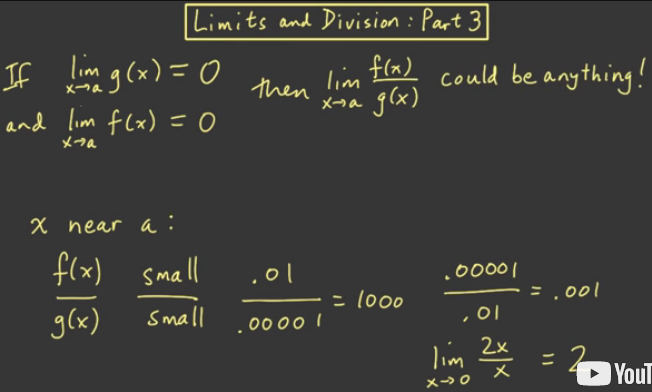 Limits and Division: Part 3
If lim x→a g(x) = 0 then lim x→a f(x)/g(x) could be anything!
and lim x→a f(x) = 0
x near a:
f(x)/g(x) small/small .01/.00001 = 1000 .00001/.01 = .001
lim x→0 2x/x = 2
YouT